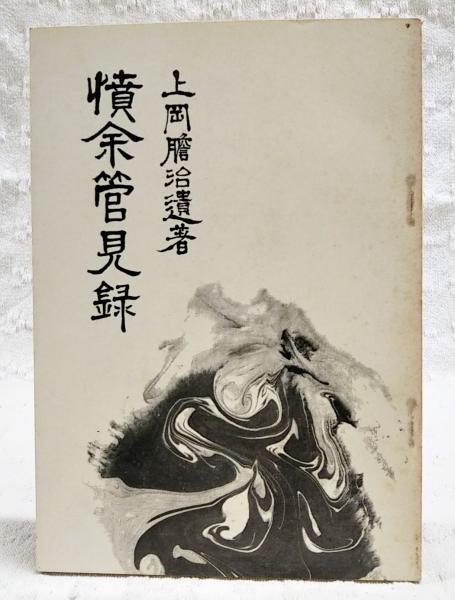 上岡膽治遺著
憤余管見録